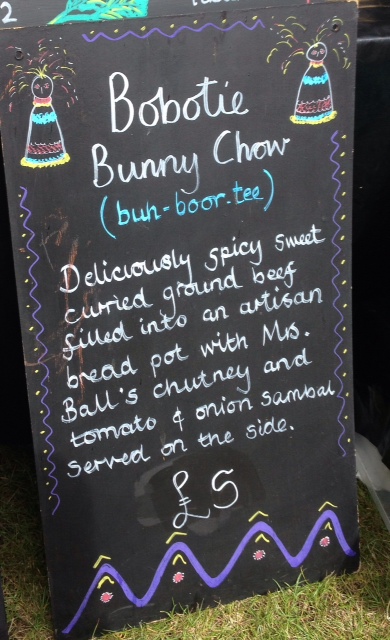 2
Bobotie
Bunny Chow
(buh-boor.tee)
Deliciously spicy sweet
curried ground beef
filled into an artisan
bread pot with Mrs.
Ball's chutney and
tomato & onion sambal
served on the side.
£5